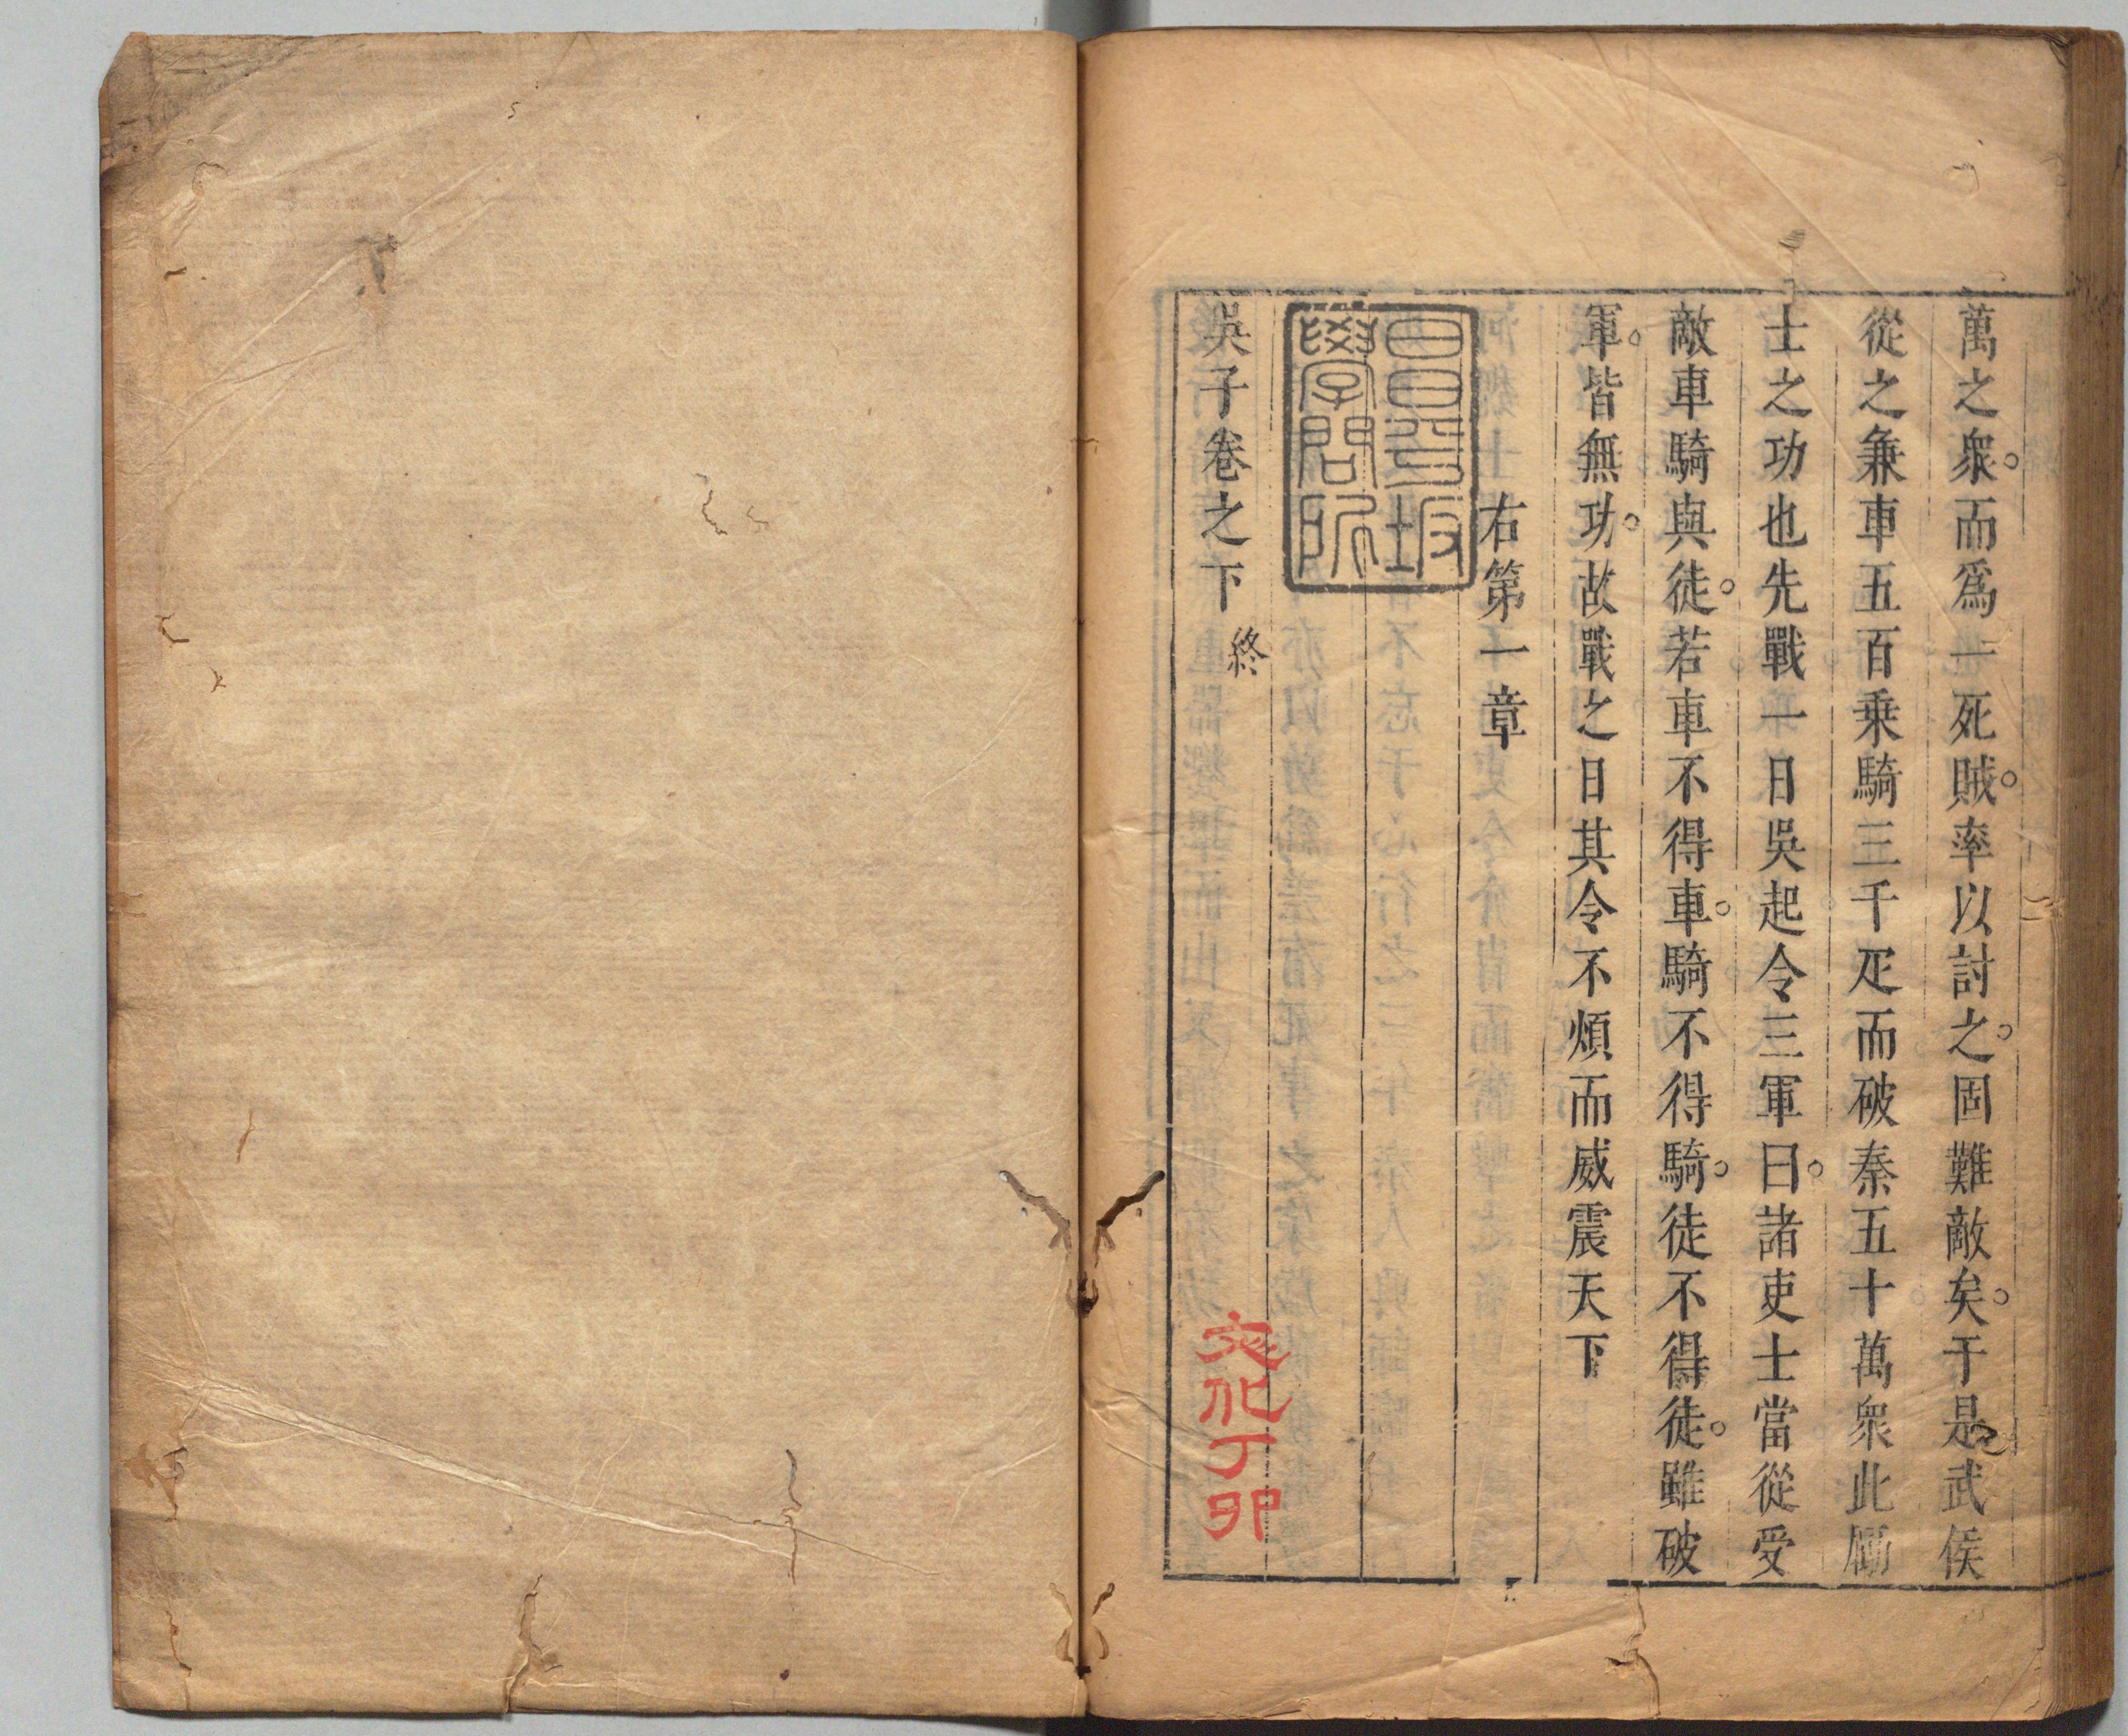 萬之衆。而爲一死賊。率以討之。固難敵矣。于是武侯
從之兼車五百乗騎三千疋而破秦五十萬衆此厲
士之功也先戰一日吳起令三軍曰。諸吏士當從受
敵車騎與徒。若車不得車。騎不得騎。徒不得徒。雖破
軍。皆無功。故戰之日其令不煩而威震天下
右第一章
昌平坂
學問所
吳子卷之下
終
文化丁卯